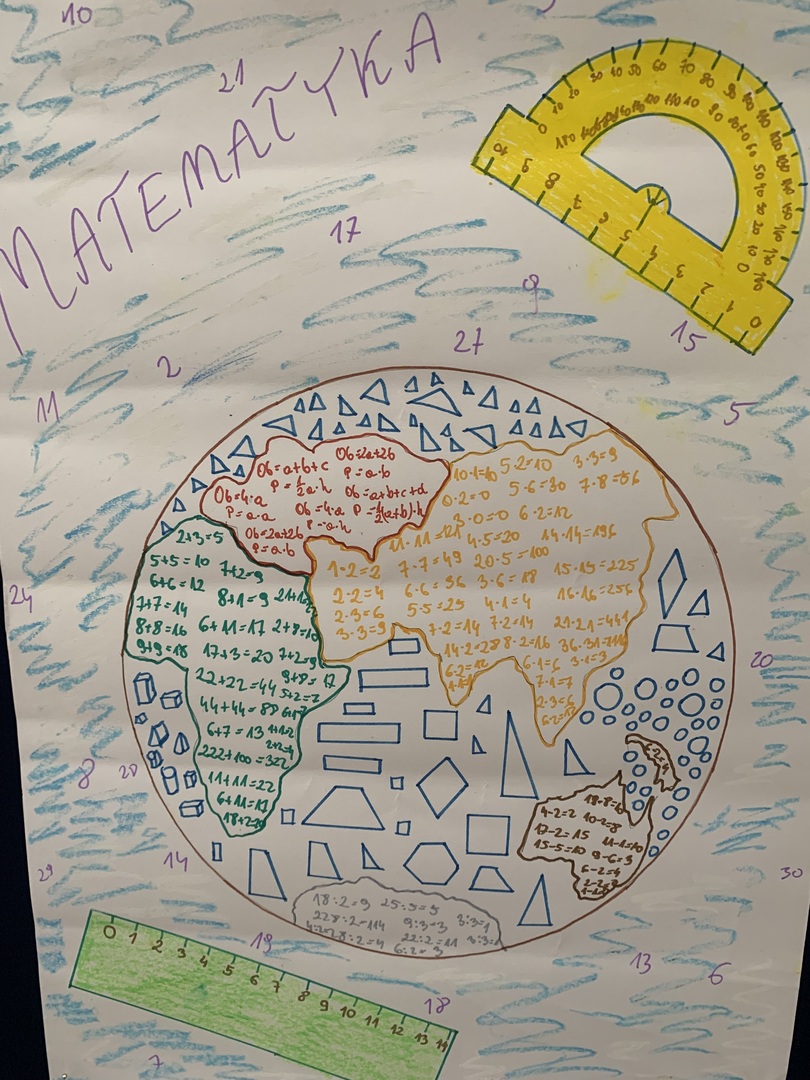 10
21
MATEMATYKA
17
9
27
15
2
11
5
24
20
8
28
14
29
30
19
13
6
18
7
0 10 20 30 40 50 60 70 80
10 9 8 7 6 5 4 3 2 1 0
Ob=a+b+c
Ob=2a+2b
P=½a·h
P=a·b
Ob=4·a
Ob=a+b+c+d
P=a·a
Ob=4·a
P=½(a+b)·h
P=a·h
Ob=2a+2b
P=a·b
2+3=5
5+5=10
7+2=9
6+6=12
8+1=9
7+7=14
6+11=17
2+8=10
8+8=16
17+3=20
7+2=9
9+9=18
9+8=17
22+22=44
5+2=7
44+44=88
6+7=13
222+100=322
11+11=22
6+11=17
18+2=20
10·1=10
5·2=10
3·3=9
0·2=0
5·6=30
7·8=56
3·0=0
6·2=12
11·11=121
4·5=20
14·14=196
1·2=2
7·7=49
20·5=100
15·15=225
2·2=4
6·6=36
3·6=18
16·16=256
2·3=6
5·5=25
4·1=4
3·3=9
7·2=14
7·2=14
21·21=441
14·2=28
8·2=16
6·2=12
6·1=6
3·1=3
7·1=7
2·3=6
6-2=4
18-8=10
4-2=2
10-2=8
17-2=15
11-1=10
15-5=10
9-6=3
6-2=4
18:2=9
25:5=5
228:2=114
9:3=3
3:3=1
4:2=2
8:2=4
22:2=11
6:2=3
0 1 2 3 4 5 6 7 8 9 10 11 12 13 14